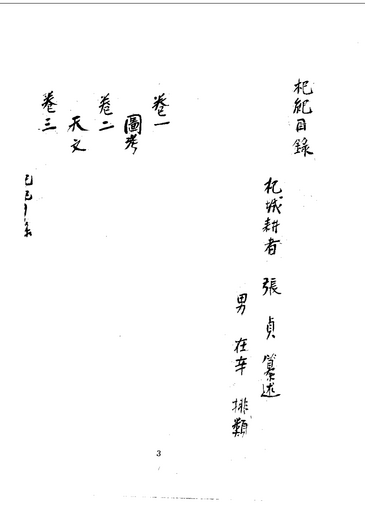 杞紀目錄
杞城耕者 張 貞 纂述
男 在辛 排類
卷一
圖考
卷二
天文
卷三
3